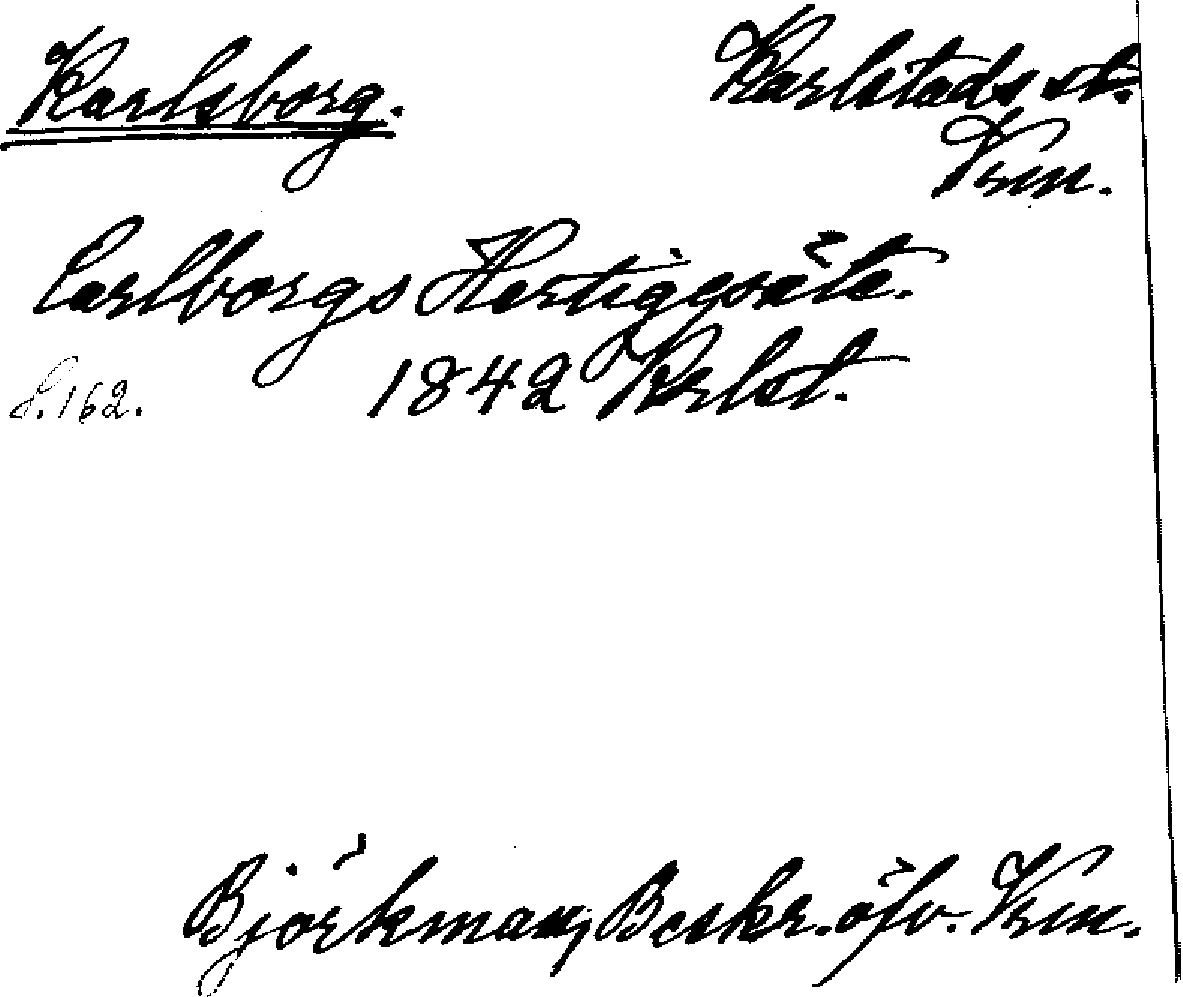 Karlsborg. Karlstads st.
Vrm.
Carlborgs Hertigesäte.
S. 162. 1842 Karlst.
Björkman, Beskr. öfv. Vrm.